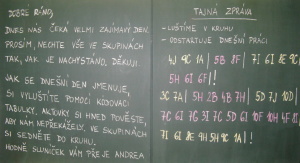 DOBRÉ RÁNO,
DNES NÁS ČEKÁ VELMI ZAJÍMAVÝ DEN.
PROSÍM, NECHTE VŠE VE SKUPINÁCH
TAK, JAK JE NACHYSTÁNO, DĚKUJI.
JAK SE DNEŠNÍ DEN JMENUJE,
SI VYLUŠTÍTE POMOCÍ KÓDOVACÍ
TABULKY, AKTOVKY SI HNED POVĚSTE,
ABY NÁM NEPŘEKÁŽELY. VE SKUPINÁCH
SI SEDNĚTE DO KRUHU.
HODNĚ SLUNÍČEK VÁM PŘEJE ANDREA
TAJNÁ ZPRÁVA
- LUŠTÍME V KRUHU
- ODSTARTUJE DNEŠNÍ PRÁCI
4J 9C 1A | 5B 8F | 7I 6I 8E 9C
5H 6I 6F!
3C 7A | 5H 2B 4B 7H | 5D 7J 10D |
7I 6I 8E 9H 5H 9C 1A | !